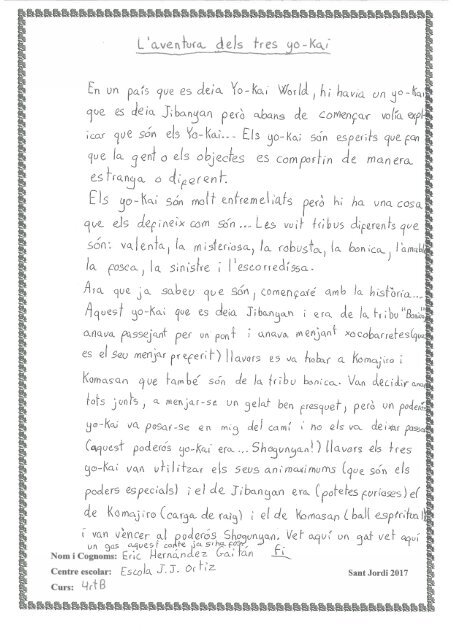 L'aventura dels tres yo-kai
En un país que es deia Yo-Kai World, hi havia un yo-kai
que es deia Jibanyan però abans de començar volia expl
icar que són els Yo-Kai... Els yo-kai són esperits que fan
que la gent o els objectes es comportin de manera
estranga o diferent.
Els yo-kai són molt entremeliats però hi ha una cosa
que els defineix com són... Les vuit tribus diferents que
són: valenta, la misteriosa, la robusta, la bonica, l'amable
la fosca, la sinistre i l'escorredissa.
Ara que ja sabeu que són, començaré amb la història...
Aquest yo-kai que es deia Jibanyan i era de la tribu "Bonica"
anava passejant per un pont i anava menjant xocobarretes (que
es el seu menjar preferit) llavors es va trobar a Komajiro i
Komasan que també són de la tribu bonica. Van decidir anar
tots junts, a menjar-se un gelat ben fresquet, però un poderós
yo-kai va posar-se en mig del camí i no els va deixar passar
(aquest poderós yo-kai era... Shogunyan!) llavors els tres
yo-kai van utilitzar els seus animaximums (que són els
poders especials) i el de Jibanyan era (potetes furioses) el
de Komajiro (carga de raig) i el de Komasan (ball espiritual)
i van vèncer al poderós Shogunyan. Vet aquí un gat vet aquí
un gos aquest conte ja s'ha fos.
Fi
Nom i Cognoms: Eric Hernández Gaitán
Centre escolar: Escola J.J. Ortiz
Sant Jordi 2017
Curs: 4rtB